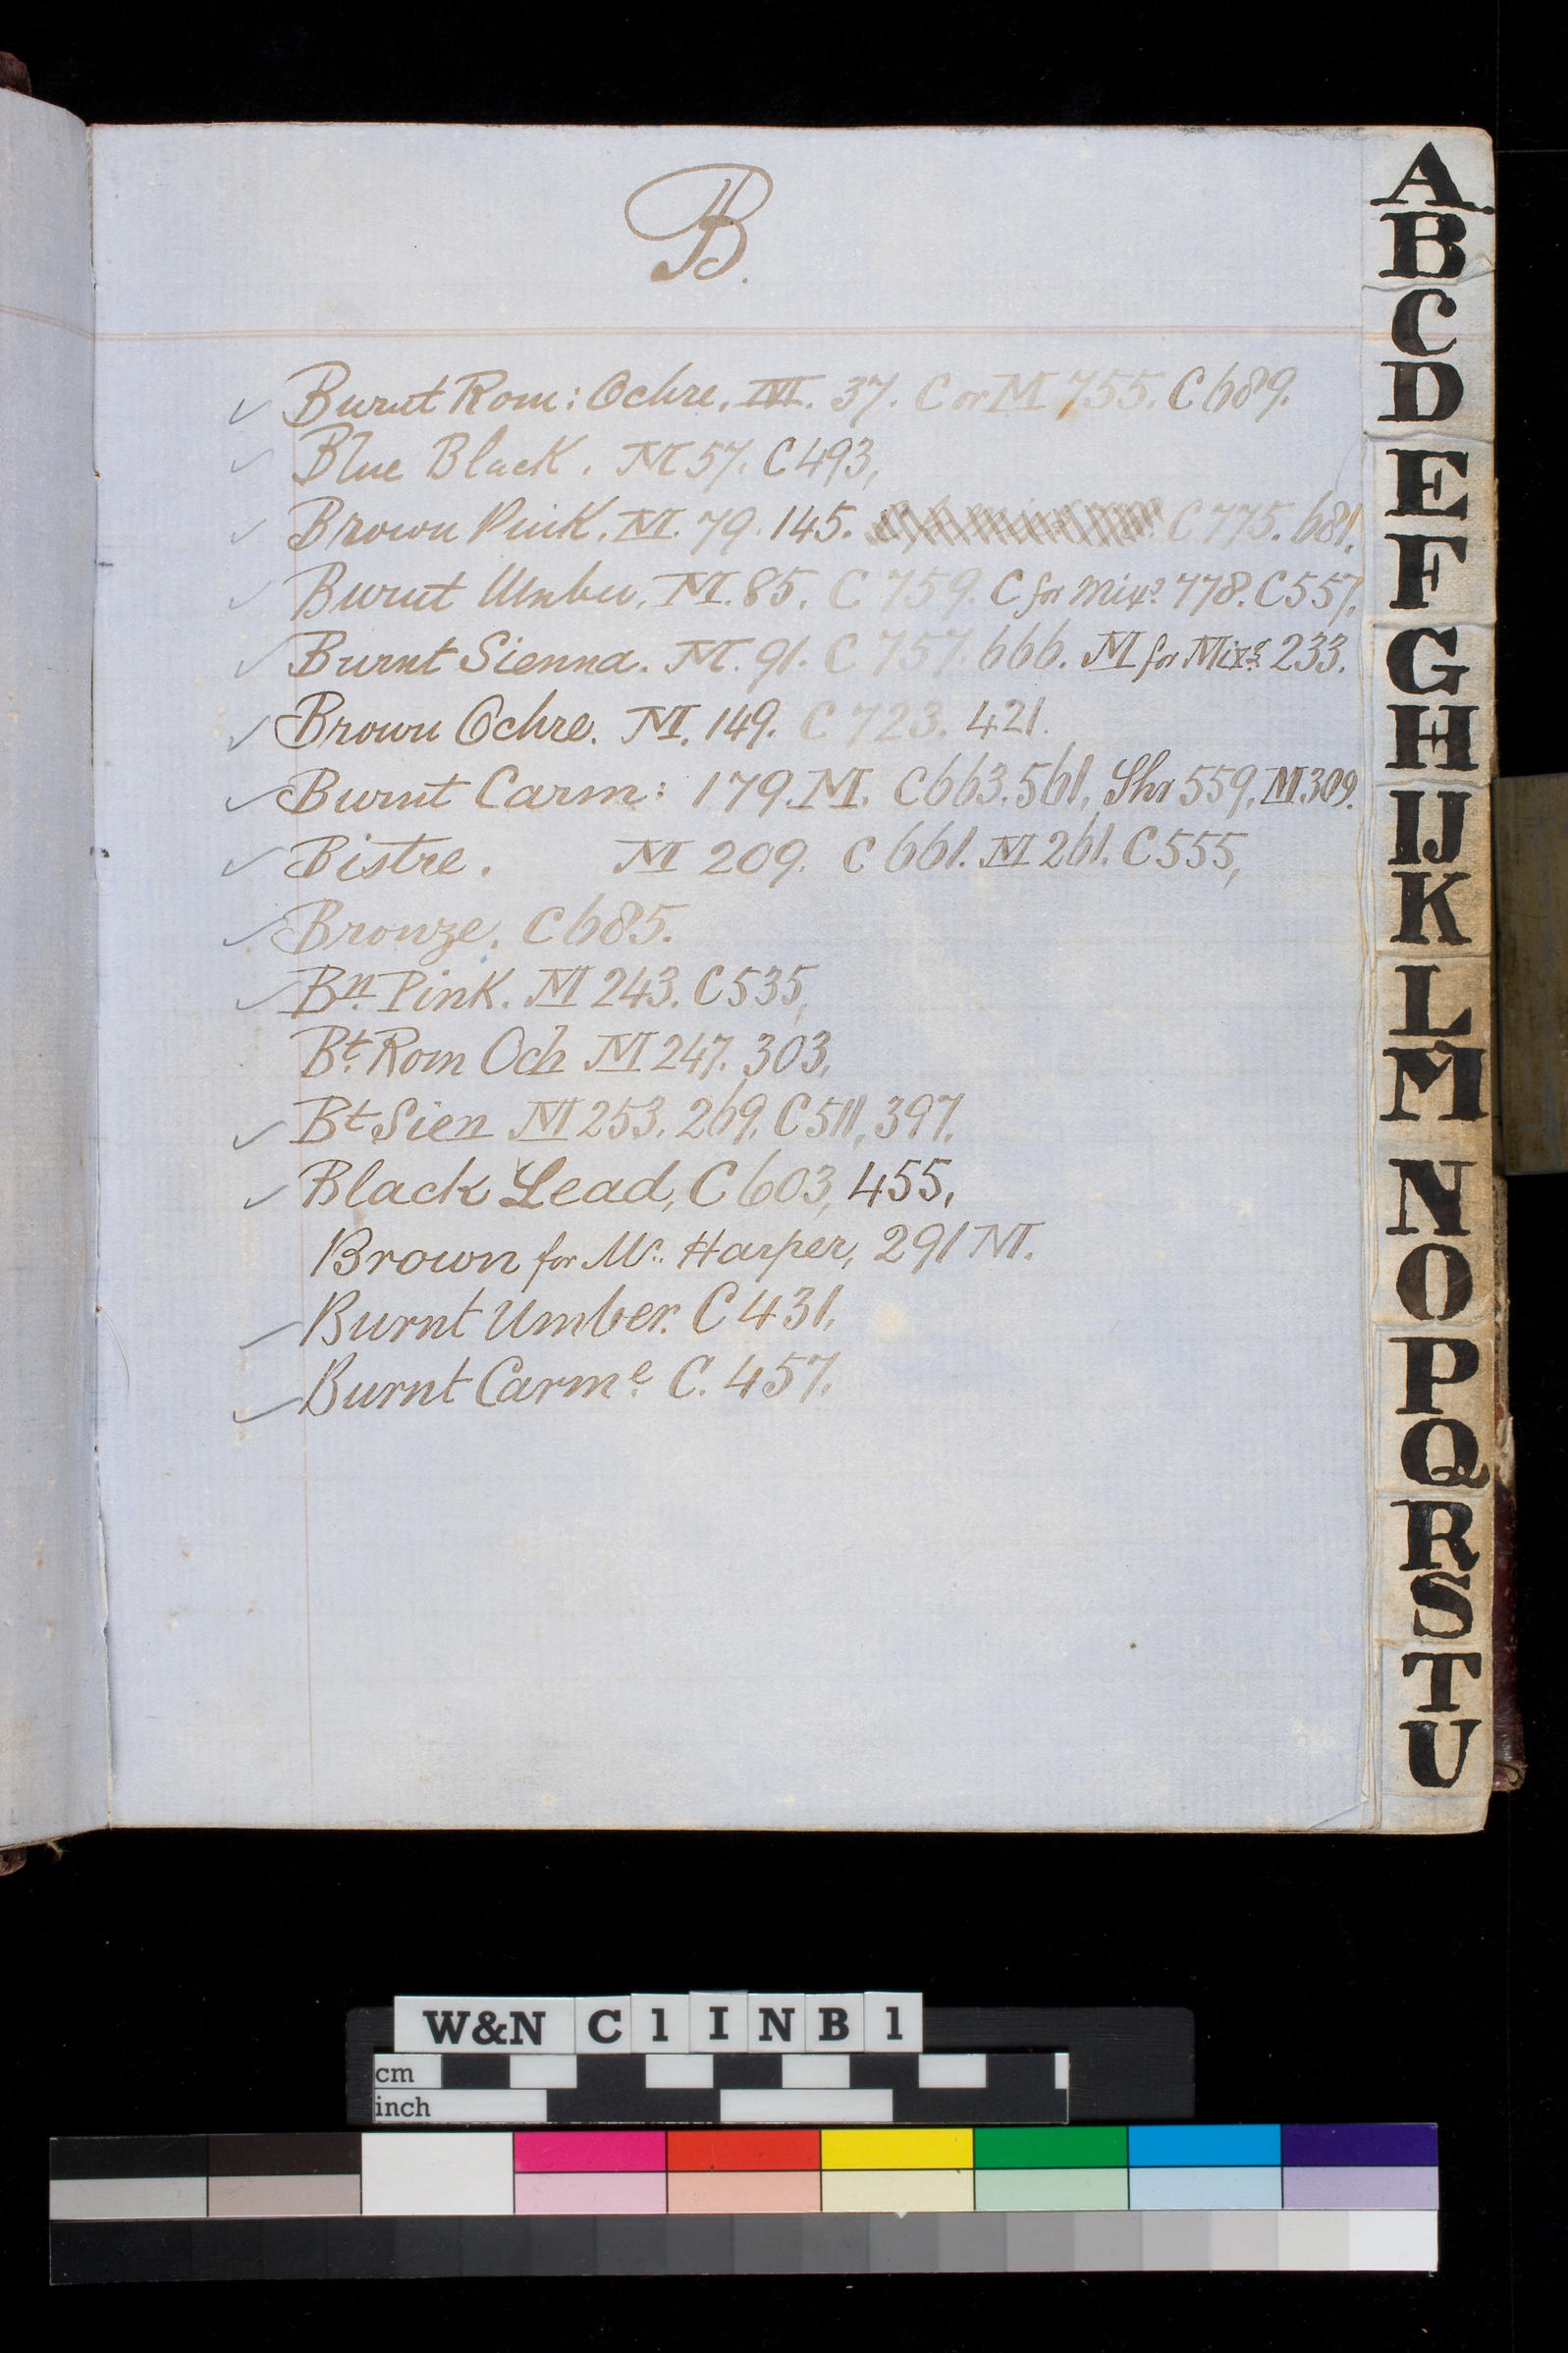 B.
✓ Burnt Rom: Ochre. M. 37. C or M 755. C 689.
✓ Blue Black. M 57. C 493,
✓ Brown Pink. M. 79. 145. C 775. 681.
✓ Burnt Umber. M. 85. C 759. C for Mixg 778. C 557.
✓ Burnt Sienna. M. 91. C 757. 666. M for Mixg 233.
✓ Brown Ochre. M. 149. C 723. 421.
✓ Burnt Carm: 179. M. C 663. 561, Shr 559, M 309.
✓ Bistre. M 209. C 661. M 261. C 555,
✓ Bronze. C 685.
✓ Bn. Pink. M 243. C 535,
Bt. Rom Och M 247. 303,
✓ Bt Sien M 253. 269. C 511, 397.
✓ Black Lead, C 603, 455,
Brown for Mr. Harper, 291 M.
✓ Burnt Umber. C 431,
✓ Burnt Carme. C. 457.
A
B
C
D
E
F
G
H
IJ
K
L
M
N
O
P
Q
R
S
T
U
W&N C1INB1
cm
inch